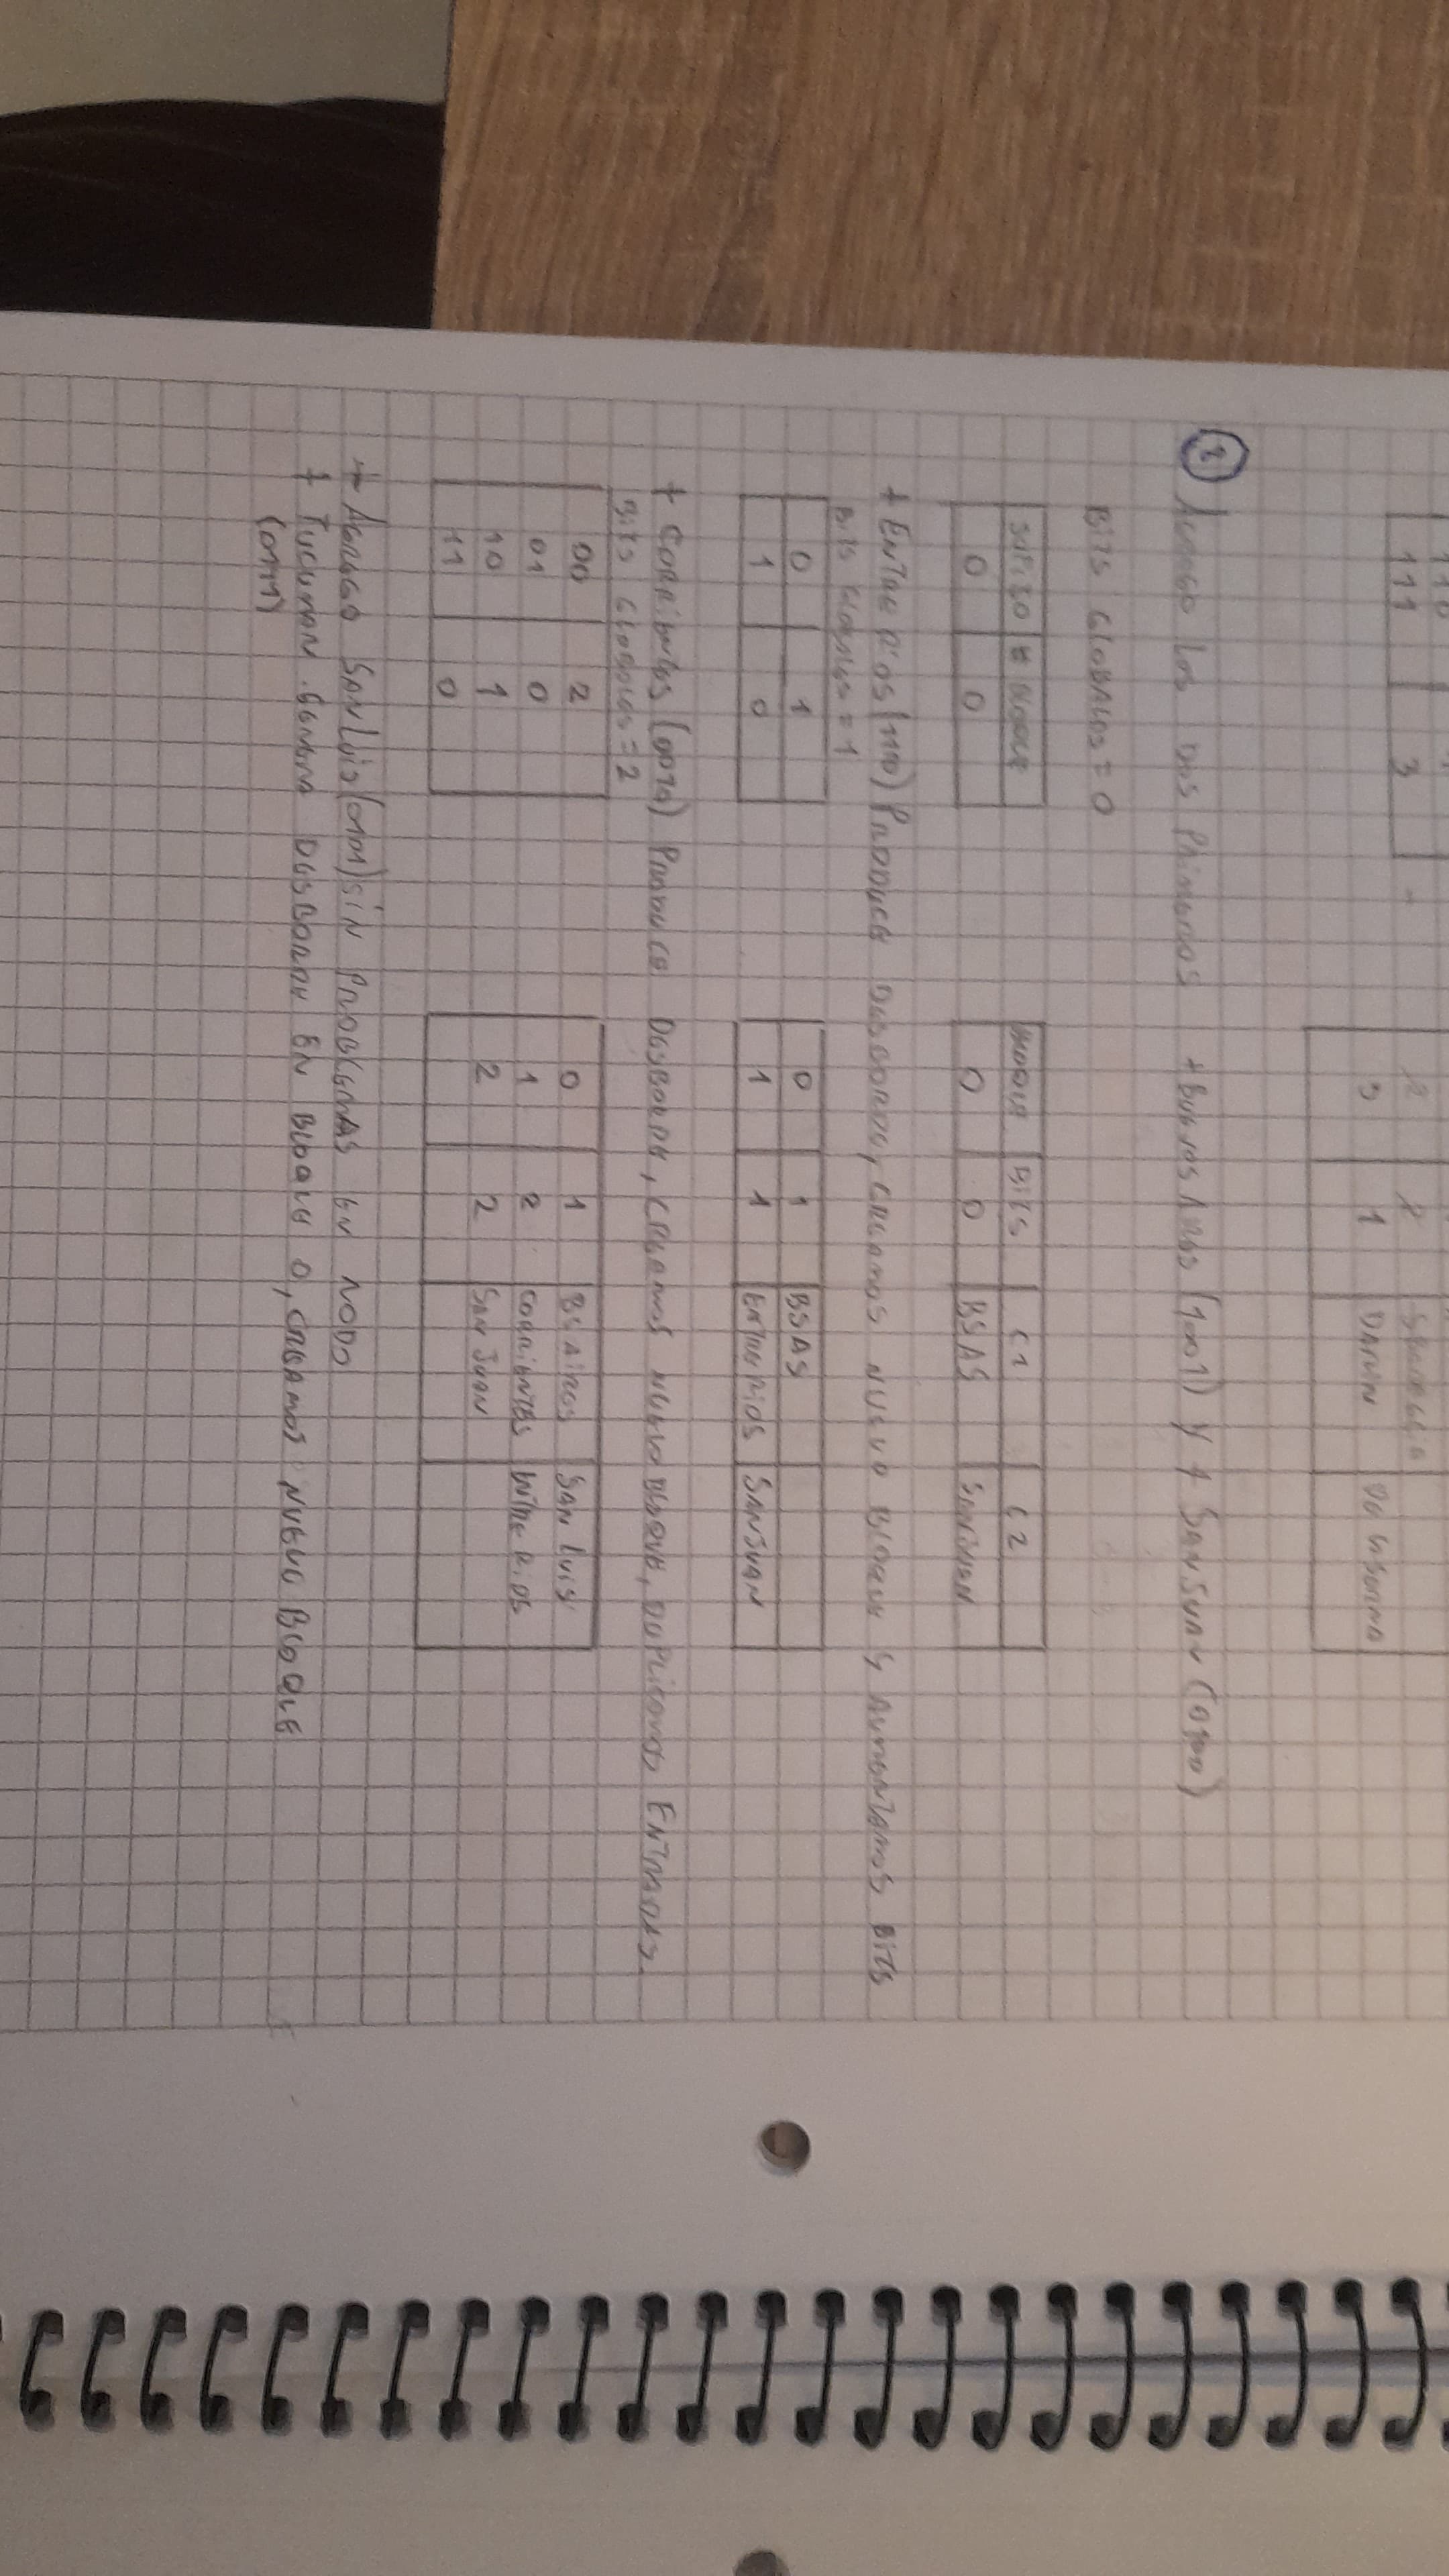 110
111 3
2 2
3 1 DARWIN
2 Agrego los dos primeros + Buenos Aires (1001) y + San Juan (0100)
Bits Globales = 0
Sufijo # Bloque
0 0
Bloque Bits C1 C2
0 0 BSAS San Juan
+ Entre Rios (1110) Produce desborde, creamos nuevo bloque y aumentamos bits
Bits Globales = 1
0 1
1 0
0 1 BSAS
1 1 Entre Rios San Juan
+ Corrientes (0010) Produce desborde, creamos nuevo bloque, duplicamos entradas.
Bits Globales = 2
00 2
01 0
10 1
11 0
0 1 BS Aires San Luis
1 2 Corrientes Entre Rios
2 2 San Juan
+ Agrego San Luis (0101) sin problemas en nodo
+ Tucuman genera desborde en bloque 0, creamos nuevo bloque
(0111)